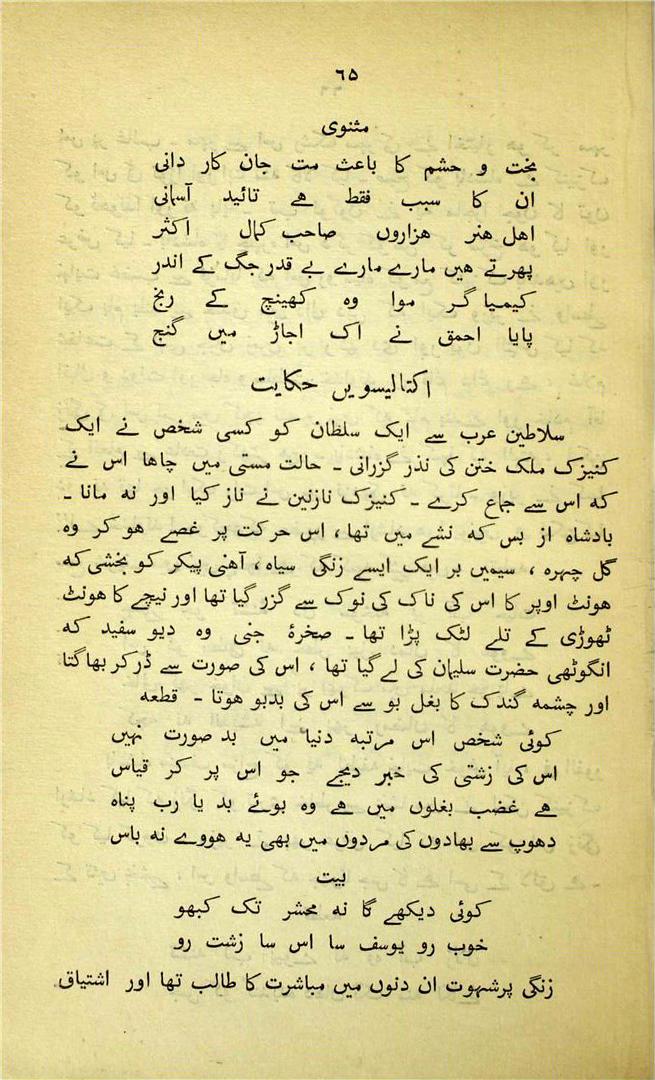 ٦٥
مثنوی
بخت و حشم کا باعث مت جان کار دانی
ان کا سبب فقط ہے تائید آسمانی
اہل ہنر ہزاروں صاحب کمال اکثر
پھرتے ہیں مارے مارے بے قدر جگ کے اندر
کیمیا گر موا وہ کھینچ کے رنج
پایا احمق نے اک اجاڑ میں گنج
اکتالیسویں حکایت
سلاطین عرب سے ایک سلطان کو کسی شخص نے ایک
کنیزک ملک ختن کی نذر گزرانی ۔ حالت مستی میں چاہا اس نے
کہ اس سے جماع کرے ۔ کنیزک نازنین نے ناز کیا اور نہ مانا ۔
بادشاہ از بس کہ نشے میں تھا ، اس حرکت پر غصے ہو کر وہ
گل چہرہ ، سیمیں بر ایک ایسے زنگی سیاہ ، آہنی پیکر کو بخشی کہ
ہونٹ اوپر کا اس کی ناک کی نوک سے گزر گیا تھا اور نیچے کا ہونٹ
ٹھوڑی کے تلے لٹک پڑا تھا ۔ صخرۂ جنی وہ دیو سفید کہ
انگوٹھی حضرت سلیمان کی لے گیا تھا ، اس کی صورت سے ڈر کر بھاگتا
اور چشمہ گندک کا بغل بو سے اس کی بدبو ہوتا ۔ قطعہ
کوئی شخص اس مرتبہ دنیا میں بد صورت نہیں
اس کی زشتی کی خبر دیجے جو اس پر کر قیاس
ہے غضب بغلوں میں ہے وہ بوئے بد یا رب پناہ
دھوپ سے بھادوں کی مردوں میں بھی یہ ہووے نہ باس
بیت
کوئی دیکھے گا نہ محشر تک کبھو
خوب رو یوسف سا اس سا زشت رو
زنگی پرشہوت ان دنوں میں مباشرت کا طالب تھا اور اشتیاق